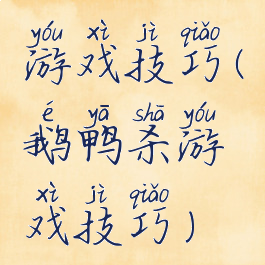 yóu xì jì qiǎo
游戏技巧(
é yā shā yóu
鹅鸭杀游
xì jì qiǎo
戏技巧)